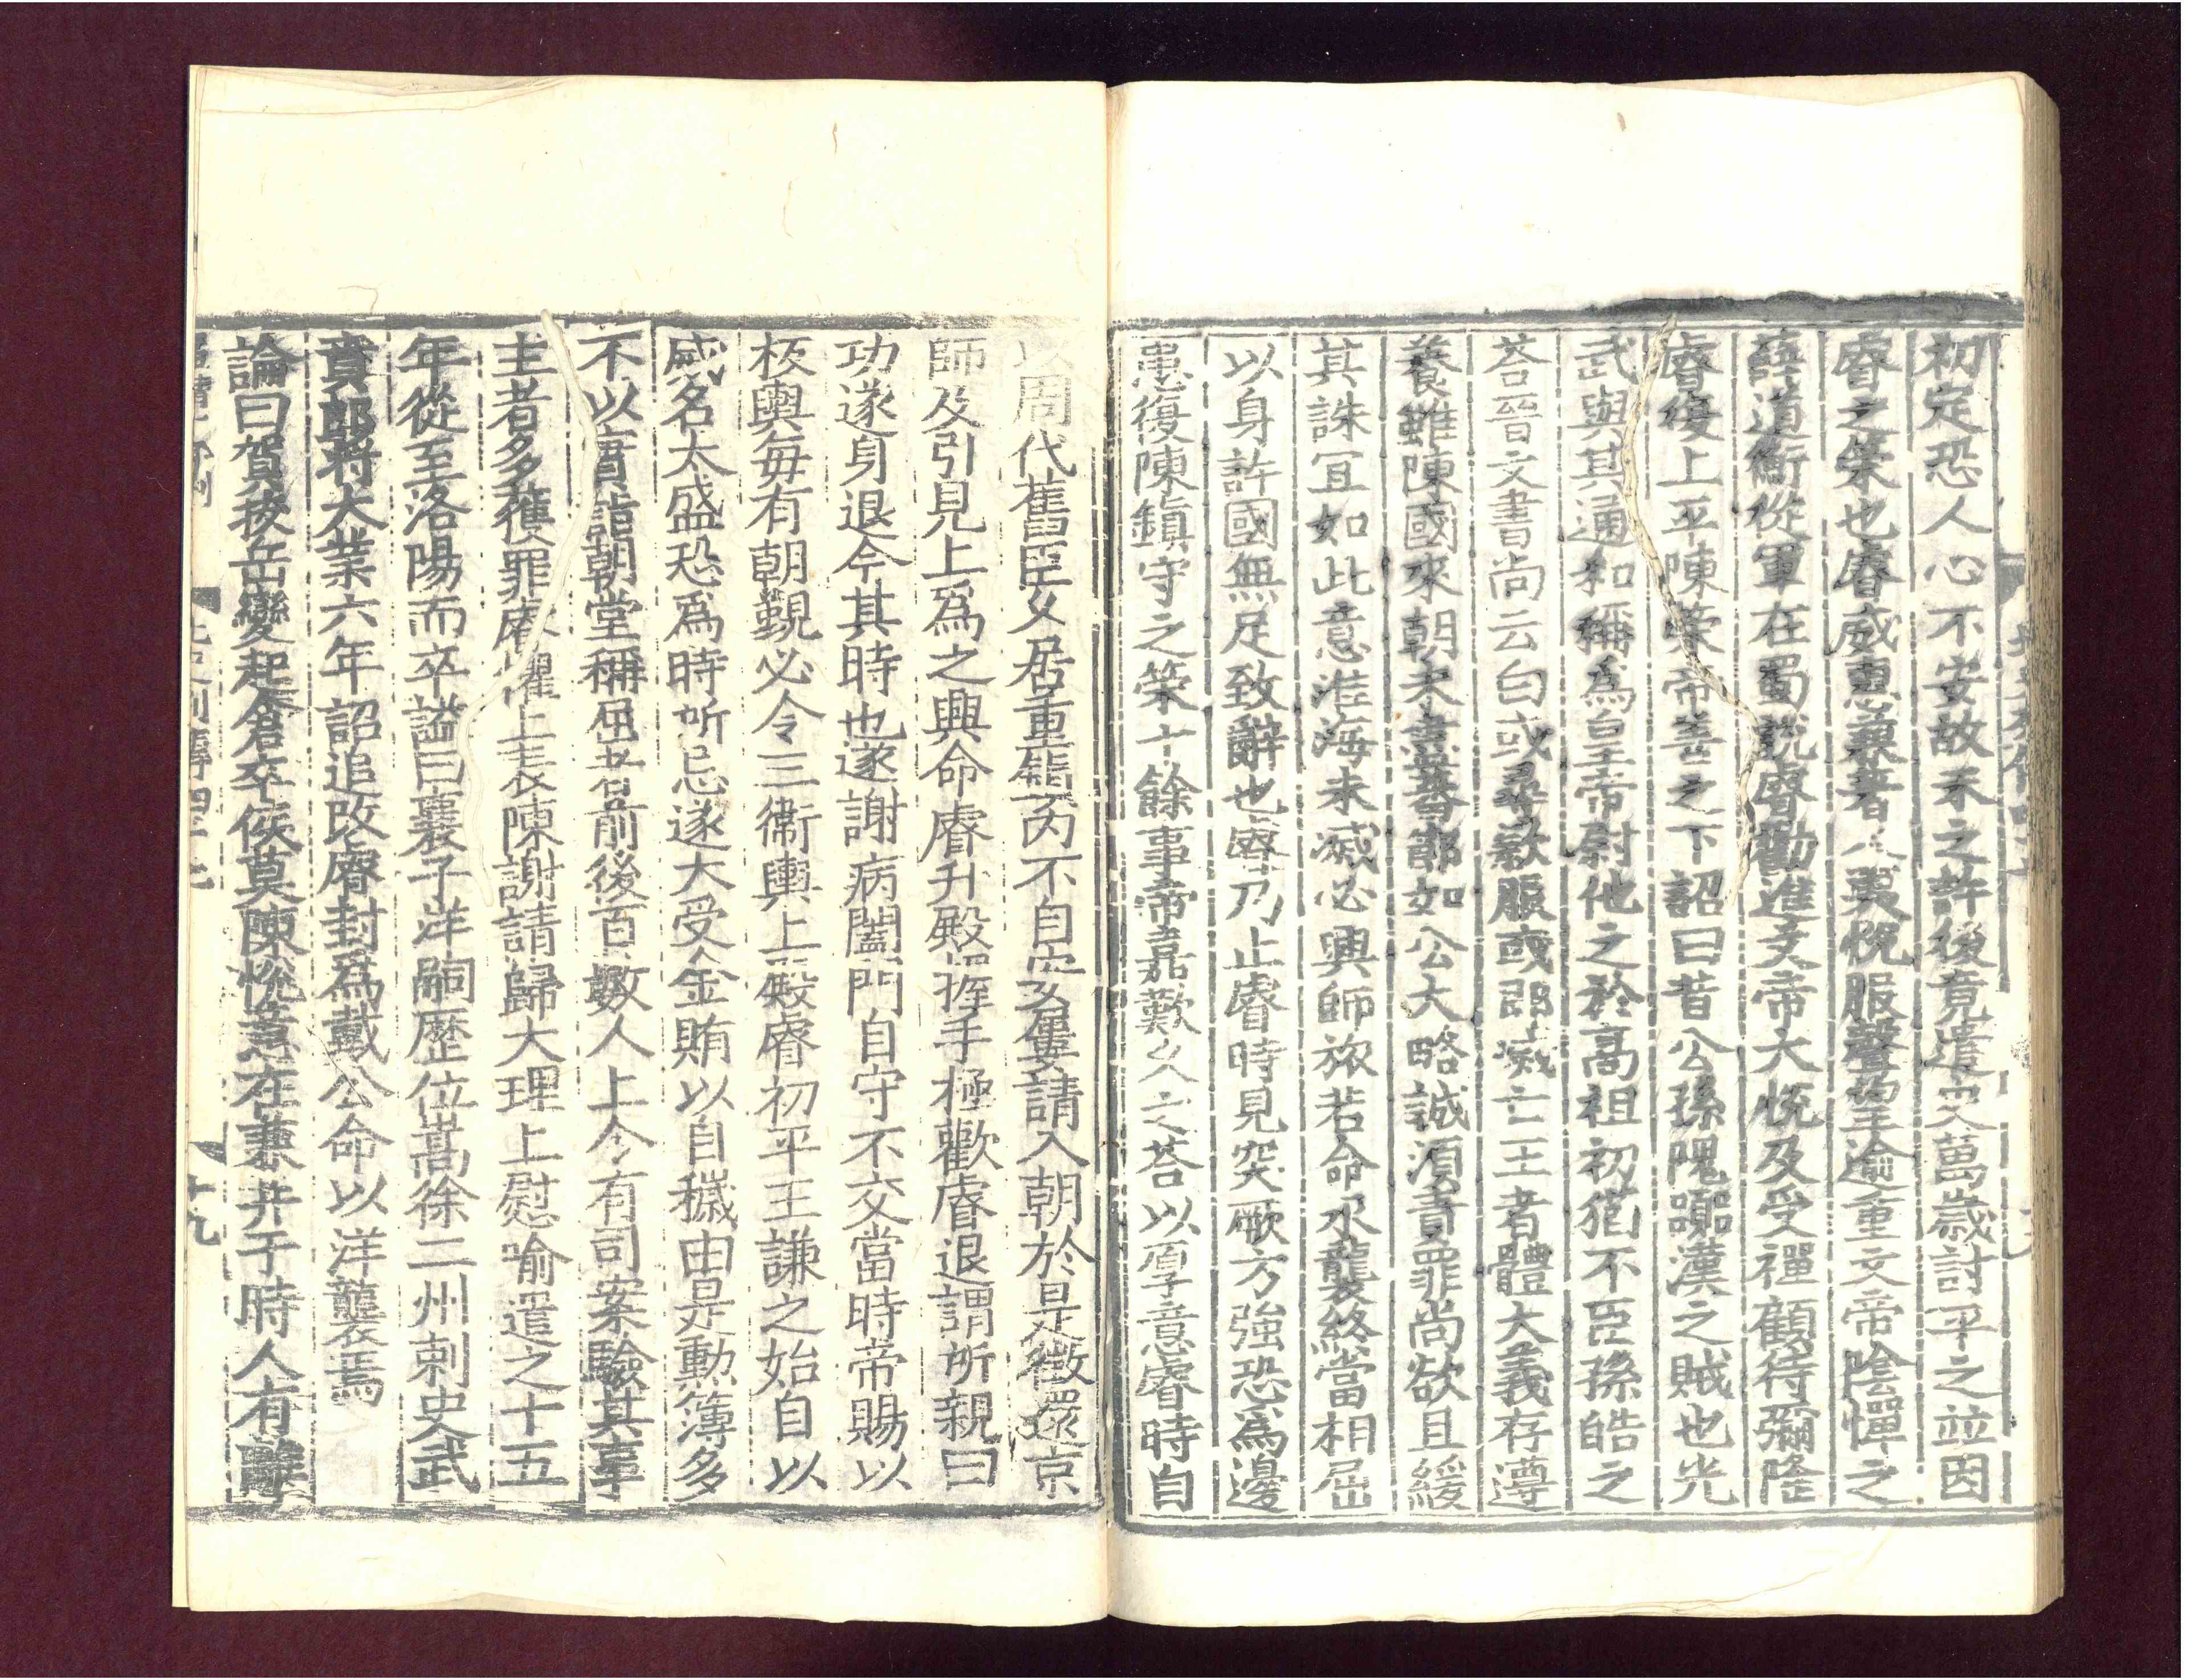 初定恐人心不安故未之許後竟遣史萬歲討平之並因
睿之策也睿威惠兼著人夷悅服聲望逾重文帝陰憚之
薛道衡從軍在蜀說睿勸進文帝大悅及受禪顧待彌隆
睿復上平陳策帝善之下詔曰昔公孫隗囂漢之賊也光
武與其通和稱爲皇帝尉他之於高祖初猶不臣孫皓之
荅晉文書尚云白或尋欵服或即滅亡王者體大義存遵
養雖陳國來朝未盡蕃節如公大略誠湏責罪尚欲且緩
其誅宜如此意淮海未滅必興師旅若命水龍終當相屈
以身許國無足致辭也睿乃止睿時見突厥方強恐爲邊
患復陳鎮守之策十餘事帝嘉歎久之荅以厚意睿時自
以周代舊臣久居重鎮內不自安屢請入朝於是徵還京
師及引見上爲之興命睿升殿握手極歡睿退謂所親曰
功遂身退今其時也遂謝病闔門自守不交當時帝賜以
板輿每有朝覲必令三衞輿上殿睿初平王謙之始自以
威名太盛恐爲時所忌遂大受金賄以自穢由是勳簿多
不以實詣朝堂稱屈者前後百數人上令有司案驗其事
主者多獲罪睿懼上表陳謝請歸大理上慰喻遣之十五
年從至洛陽而卒謚曰襄子洋嗣歷位嵩徐二州刺史武
賁郎將大業六年詔追改睿封爲戴公命以洋襲焉
論曰賀拔岳變起倉卒侯莫陳悅意在兼并于時人有離
北史列傳四十七
十九